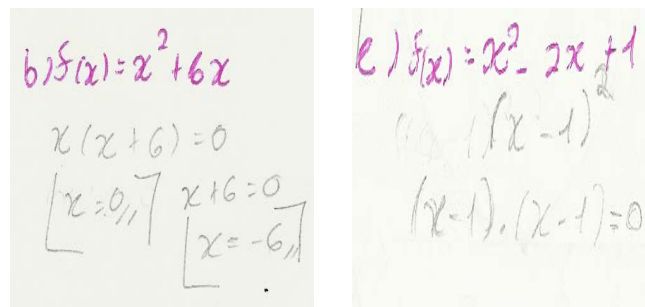 b) f(x) = x² + 6x
x(x + 6) = 0
x = 0,, x + 6 = 0
x = -6,,
e) f(x) = x² - 2x + 1
(x - 1)²
(x - 1) . (x - 1) = 0